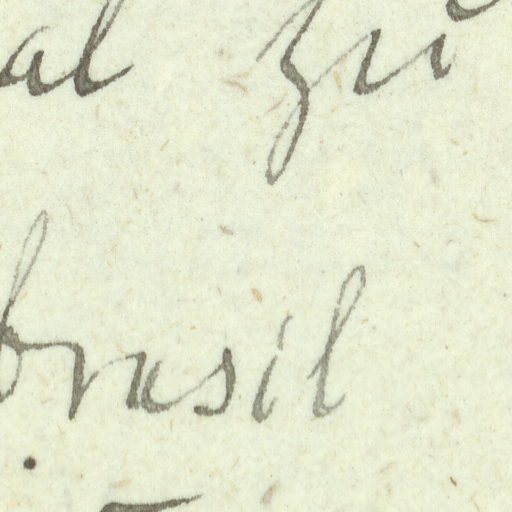 al zu
brasil